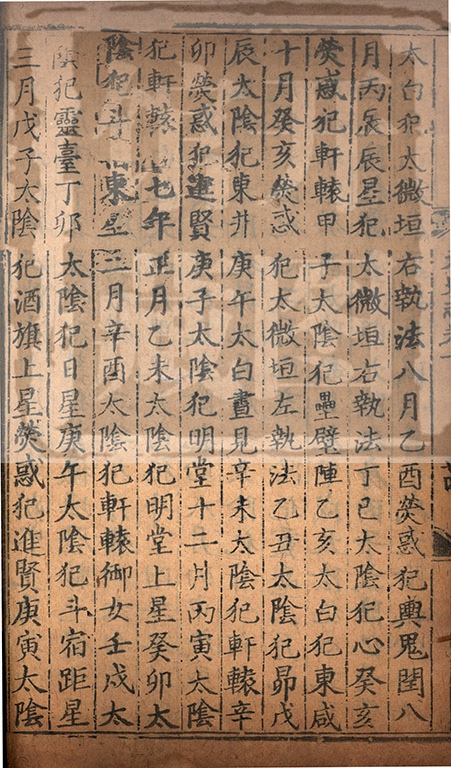 太白犯太微垣右執法八月乙酉熒惑犯輿鬼閏八
月丙辰辰星犯太微垣右執法丁巳太陰犯心癸亥
熒惑犯軒轅甲子太陰犯壘壁陣乙亥太白犯東咸
十月癸亥熒惑犯太微垣左執法乙丑太陰犯昴戊
辰太陰犯東井庚午太白晝見辛未太陰犯軒轅辛
卯熒惑犯進賢庚子太陰犯明堂十二月丙寅太陰
犯軒轅七年正月乙未太陰犯明堂上星癸卯太
陰犯斗東星二月辛酉太陰犯軒轅御女壬戌太
陰犯靈臺丁卯太陰犯日星庚午太陰犯斗宿距星
三月戊子太陰犯酒旗上星熒惑犯進賢庚寅太陰